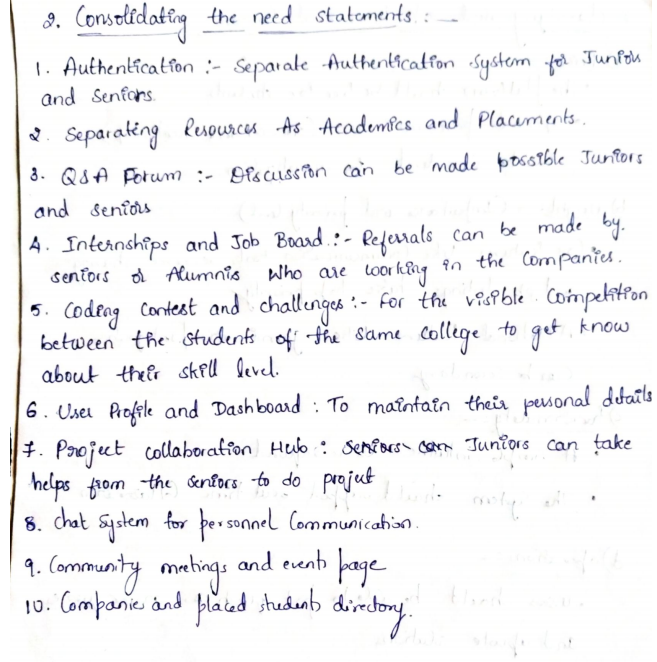 2. Consolidating the need statements : -
1. Authentication :- Separate Authentication System for Juniors
and Seniors.
2. Separating Resources As Academics and Placements.
3. Q&A Forum :- Discussion can be made possible Juniors
and seniors
4. Internships and Job Board :- Referrals can be made by.
seniors or Alumnis who are working in the Companies.
5. Coding Contest and challenges :- For the visible Competition
between the students of the same college to get know
about their skill level.
6. User Profile and Dashboard : To maintain their personal details
7. Project collaboration Hub : Juniors can take
helps from the seniors to do project
8. Chat System for personnel Communication.
9. Community meetings and event page
10. Companie and placed students directory.